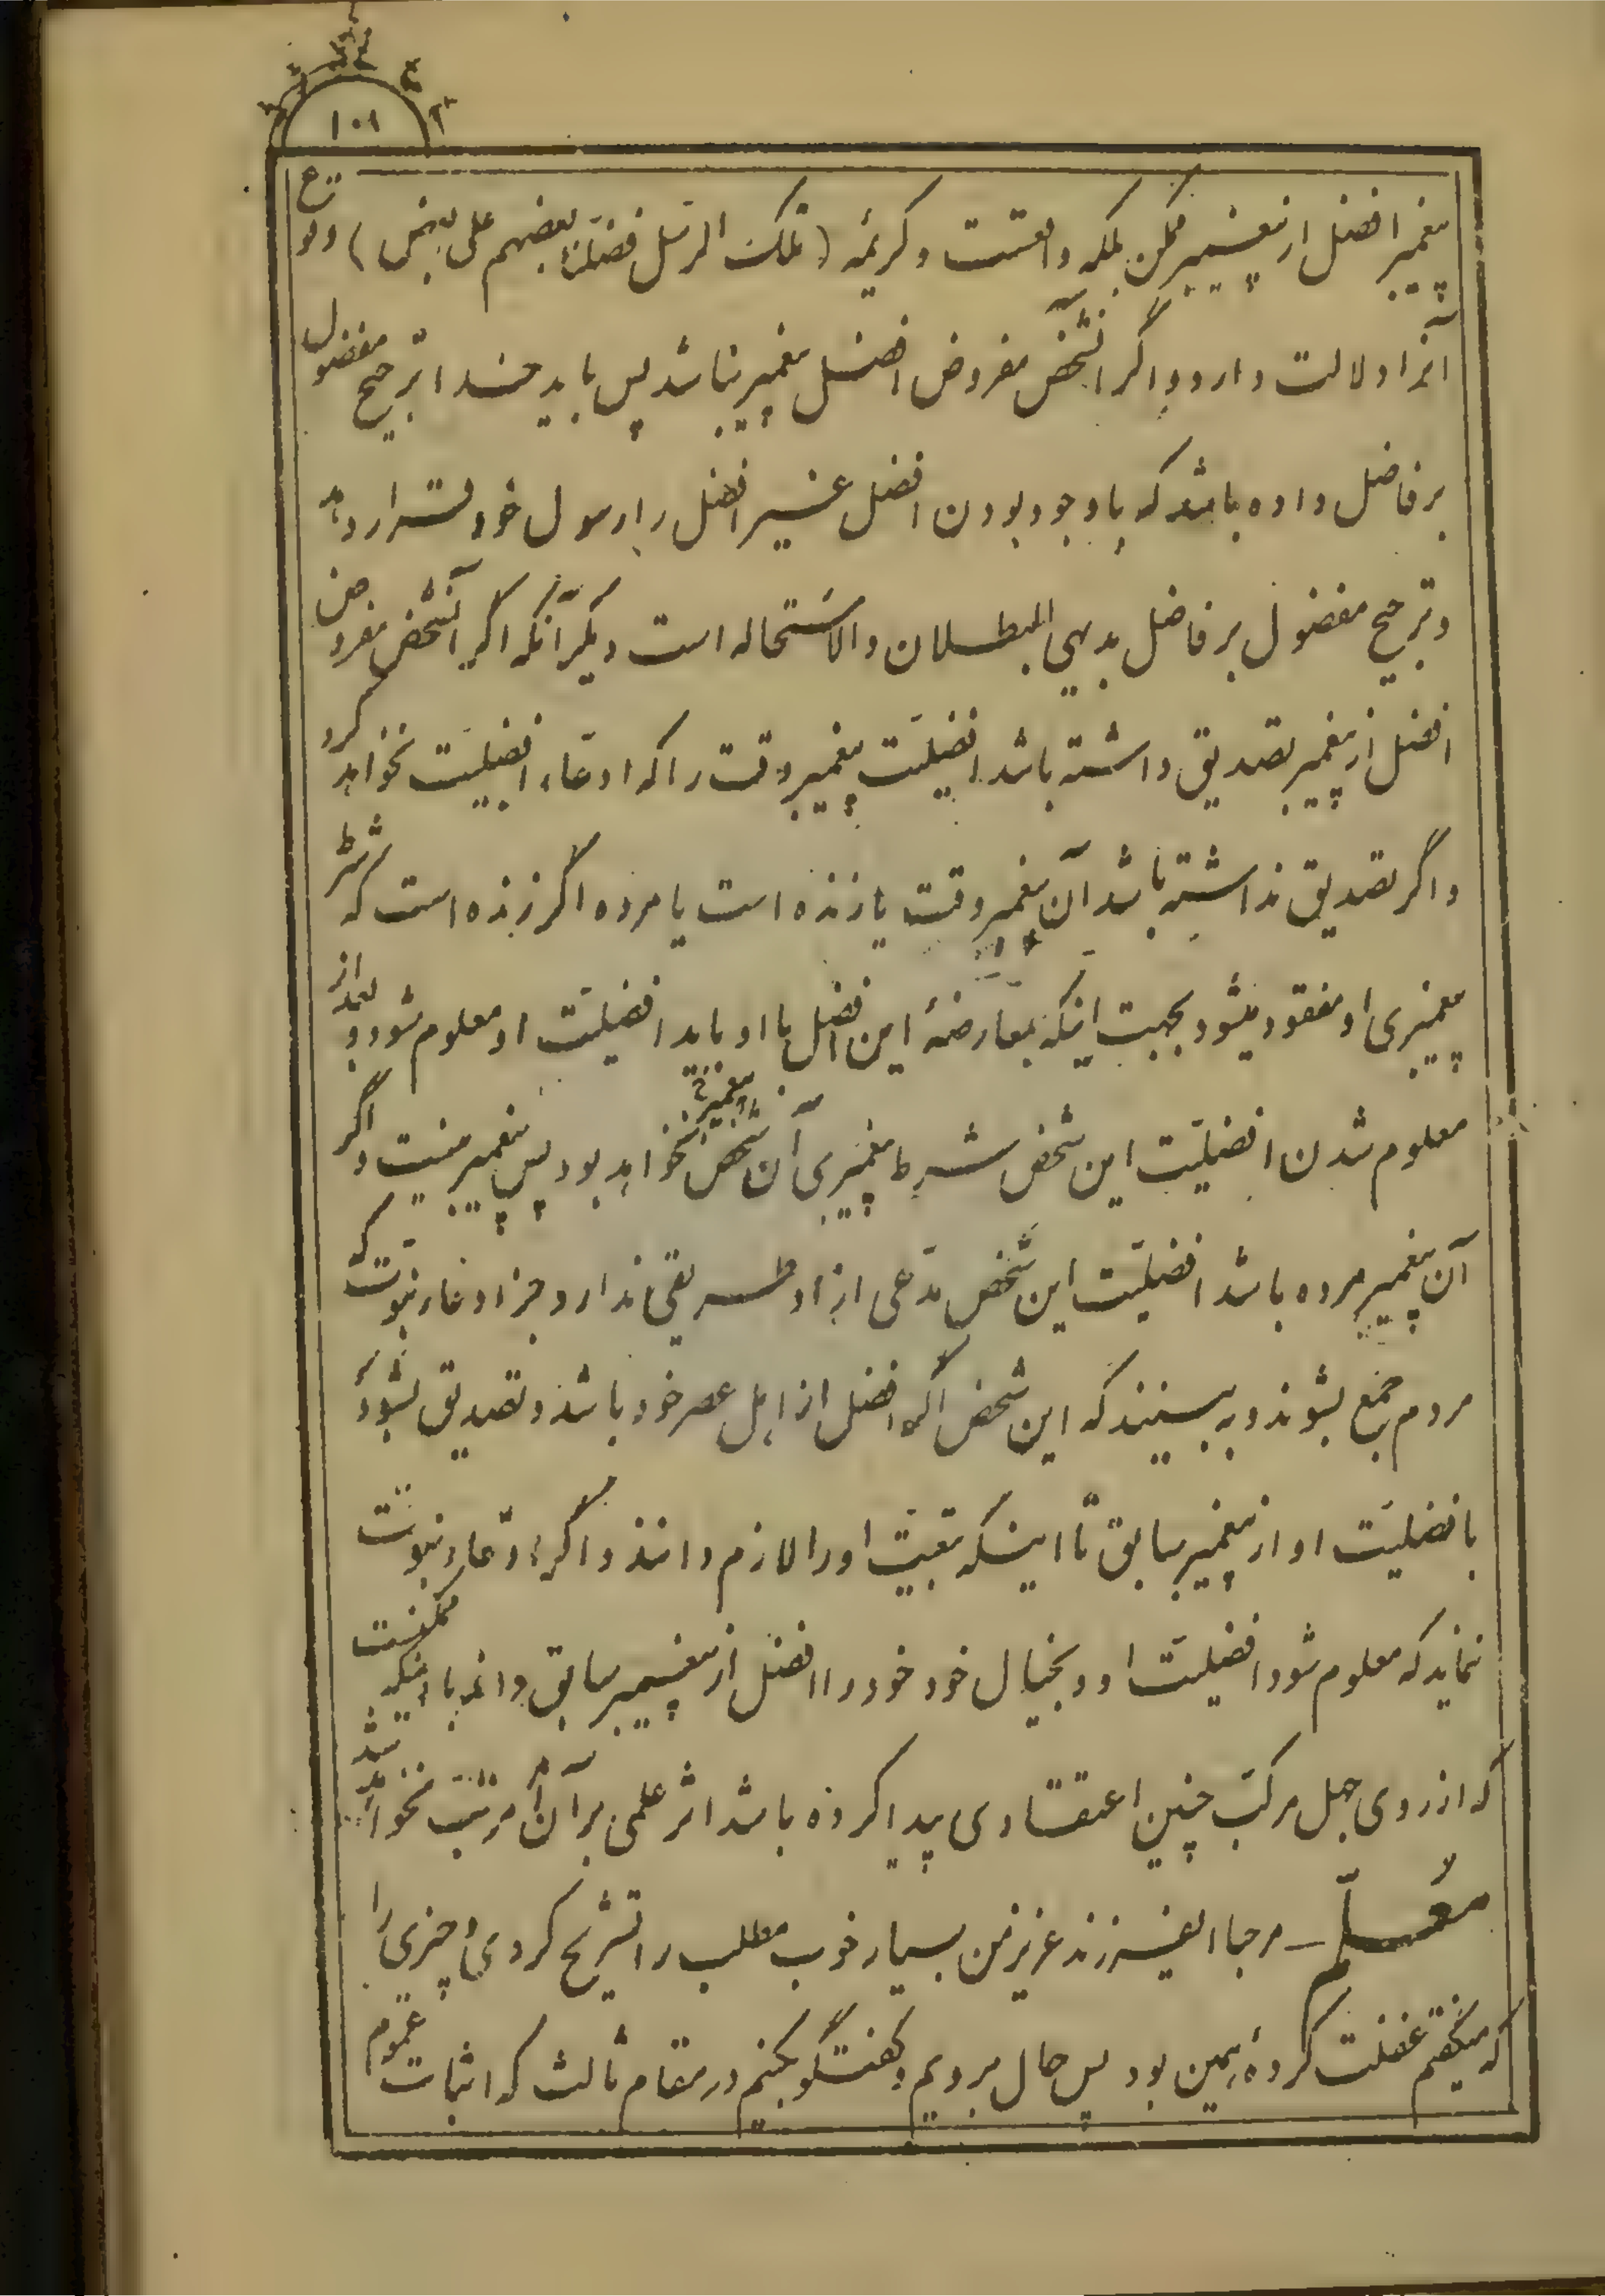 ۱۰۱
پیغمبر افضل از پیغمبر ممکن بلکه واقعست و کریمه (تلک الرسل فضلنا بعضهم علی بعض) وقوع
آنرا دلالت دارد و اگر انشخص مفروض افضل پیغمبر نباشد پس باید خدا ترجیح مفضول
بر فاضل داده باشد که با وجود بودن افضل غیر افضل را رسول خود قرار دهد
و ترجیح مفضول بر فاضل بدیهی البطلان والاستحاله است دیگر آنکه اگر آنشخص مفروض
افضل از پیغمبر تصدیق داشته باشد افضیلت پیغمبر وقت را که ادعاء افضلیت نخواهد کرد
و اگر تصدیق نداشته باشد آن پیغمبر وقت یا زنده است یا مرده اگر زنده است که شرط
پیغمبری او مفقود میشود بجهت اینکه بمعارضهٔ این افضل با او باید افضلیت او معلوم شود و بعد از
معلوم شدن افضلیت این شخص شرط پیغمبری آن شخص نخواهد بود پس پیغمبر نیست و اگر
آن پیغمبر مرده باشد افضلیت این شخص مدعی از او طریقی ندارد جز ادعاء نبوت که
مردم جمع بشوند و به بینند که این شخص اگر افضل از اهل عصر خود باشد و تصدیق بشود
بافضلیت او از پیغمبر سابق تا اینکه تبعیت او را لازم دانند و اگر ادعاء نبوت
نماید که معلوم شود افضیلت او و بخیال خود خود را افضل از پیغمبر سابق داند با اینکه ممکنست
که از روی جهل مرکب چنین اعتقادی پیدا کرده باشد اثر علمی بر آن مرتب نخواهد شد
معلم ــ مرحبا ایفرزند عزیز من بسیار خوب مطلب را تشریح کردی و چیزی را
که میگفتم غفلت کردهٔ همین بود پس حال برویم و گفتگو بکنیم در مقام ثالث که اثبات عموم